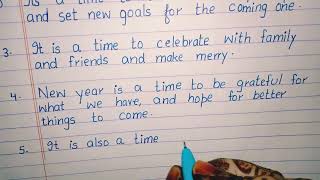 and set new goals for the coming one.
3. It is a time to celebrate with family
and friends and make merry.
4. New year is a time to be grateful for
what we have, and hope for better
things to come.
5. It is also a time